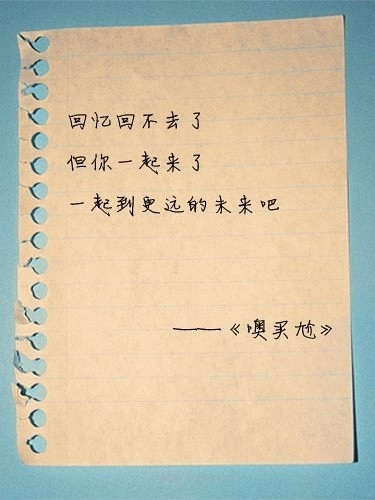 回忆回不去了
但你一起来了
一起到更远的未来吧
——《噢买尬》